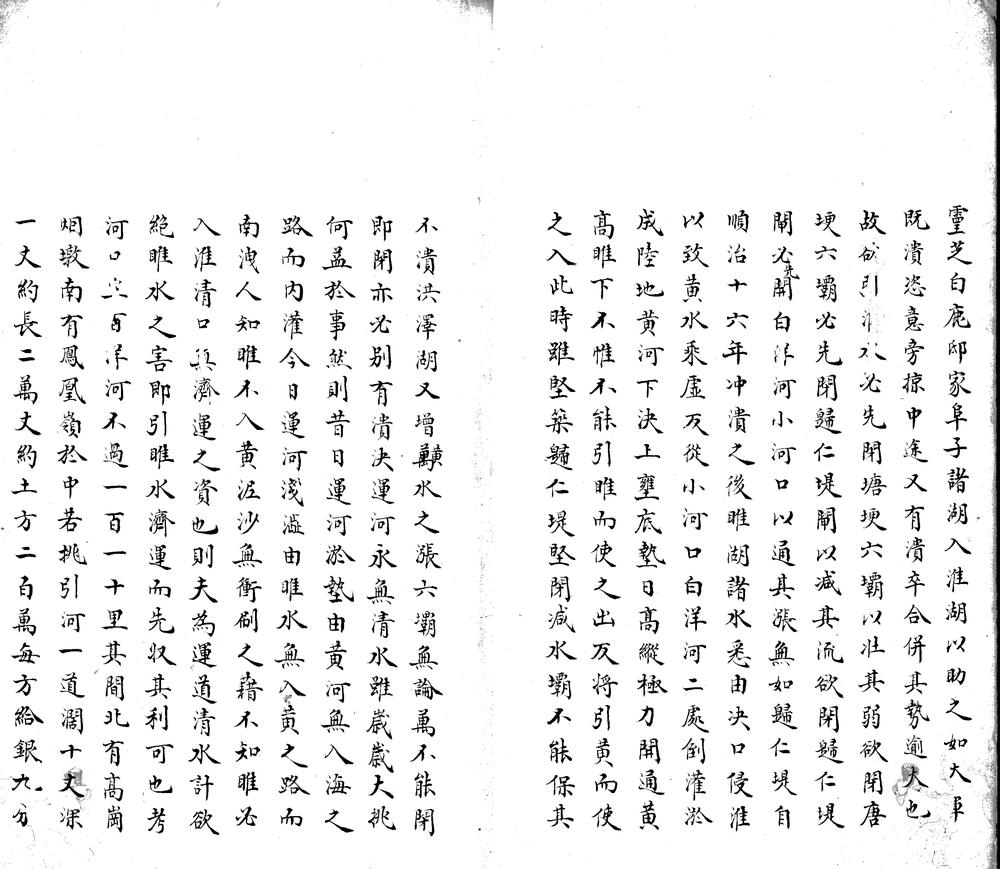 靈芝白鹿邸家阜子諸湖入淮湖以助之如大旱
既潰恣意旁掠中途又有潰卒合併其勢逾大也
故欲引淮水必先閉塘埂六壩以壯其弱欲閉唐
埂六壩必先閉歸仁堤閘以减其流欲閉歸仁堤
閘必先開白洋河小河口以通其漲無如歸仁堤自
順治十六年冲潰之後睢湖諸水悉由决口侵淮
以致黃水乘虛反從小河口白洋河二處倒灌淤
成陸地黃河下決上壅底墊日高縱極力開通黃
高睢下不惟不能引睢而使之出反将引黃而使
之入此時雖堅築歸仁堤堅閉减水壩不能保其
不潰洪澤湖又增驥水之漲六壩無論萬不能閉
即閉亦必别有潰決運河永無清水雖歲歲大挑
何益於事然則昔日運河淤墊由黃河無入海之
路而内灌今日運河淺溢由睢水無入黃之路而
南洩人知睢不入黃泥沙無衝刷之藉不知睢必
入淮清口無濟運之資也則夫為運道清水計欲
絶睢水之害即引睢水濟運而先収其利可也考
河口至白洋河不過一百一十里其間北有高崗
烟墩南有鳳凰嶺於中若挑引河一道濶十丈深
一丈約長二萬丈約土方二百萬每方給銀九分